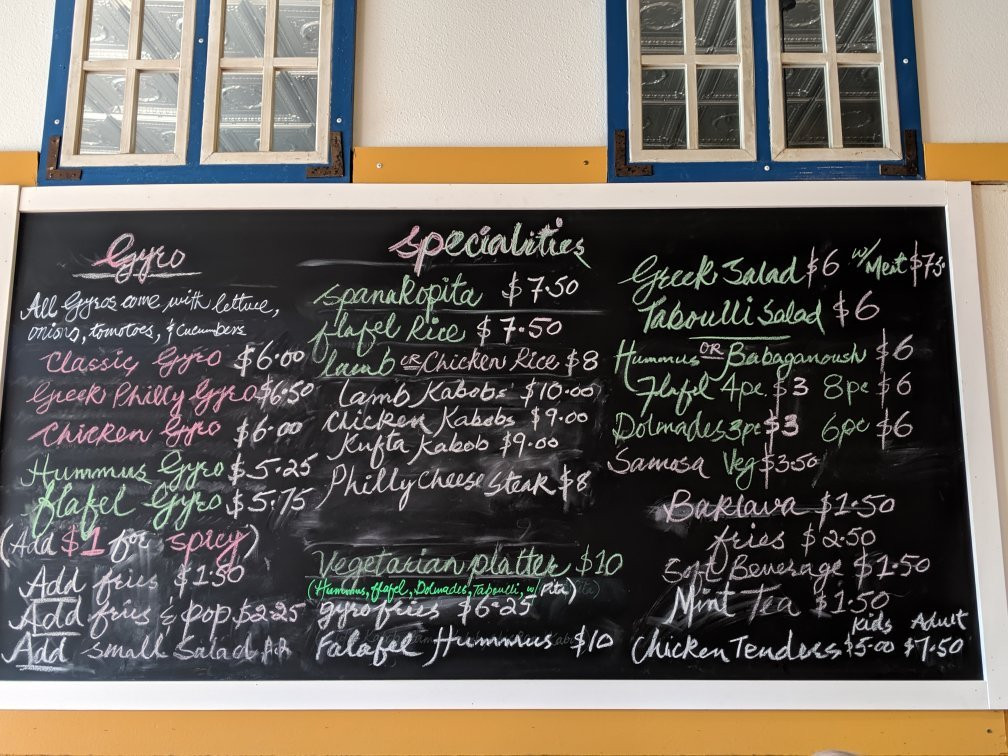 Gyro
All Gyros come with lettuce,
onions, tomotoes, & cucumbers
Classic Gyro $6.00
Greek Philly Gyro $6.50
Chicken Gyro $6.00
Hummus Gyro $5.25
flafel Gyro $5.75
(Add $1 for spicy)
Add fries $1.50
Add fries & pop $2.25
Add small Salad
Specialities
Spanakopita $7.50
flafel Rice $7.50
lamb OR Chicken Rice $8
Lamb Kabobs $10.00
Chicken Kabobs $9.00
Kufta Kabob $9.00
Philly Cheese Steak $8
Vegetarian platter $10
(Hummus, flafel, Dolmades, Taboulli, w/ Pita)
gyro fries $6.25
Falafel Hummus $10
Greek Salad $6 w/ Meat $7.50
Taboulli Salad $6
Hummus OR Babaganoush $6
flafel 4pc. $3 8pc $6
Dolmades 3pc $3 6pc $6
Samosa Veg $3.50
Baklava $1.50
fries $2.50
Soft Beverage $1.50
Mint Tea $1.50
Kids Adult
Chicken Tenders $5.00 $7.50